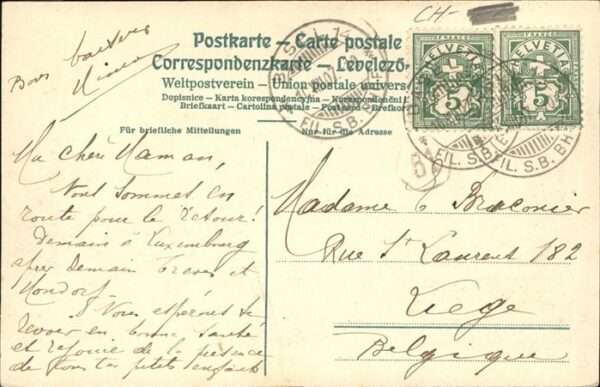 CH-
Postkarte – Carte postale
Correspondenzkarte – Levelező-
Weltpostverein – Union postale univers
Dopisnice – Karta korespondencyjna – Korespondenční
Briefkaart – Cartolina postale – Postcard – Brefkor
Für briefliche Mitteilungen
Nur für die Adresse
FRANCO
HELVETIA
5
FRANCO
HELVETIA
5
BASEL
FIL. S.B. BHF
FIL. S.B.
FIL. S.B. BH
B
Bons baisers
Ma chère Maman,
Nous sommes en
route pour le retour!
Demain à Luxembourg
après Demain Treves et
Mondorf.
Nous espérons te
revoir en bonne santé
et réjouie de la présence
de tous tes petits enfants
Madame C Braconier
Rue St Laurent 182
Liege
Belgique